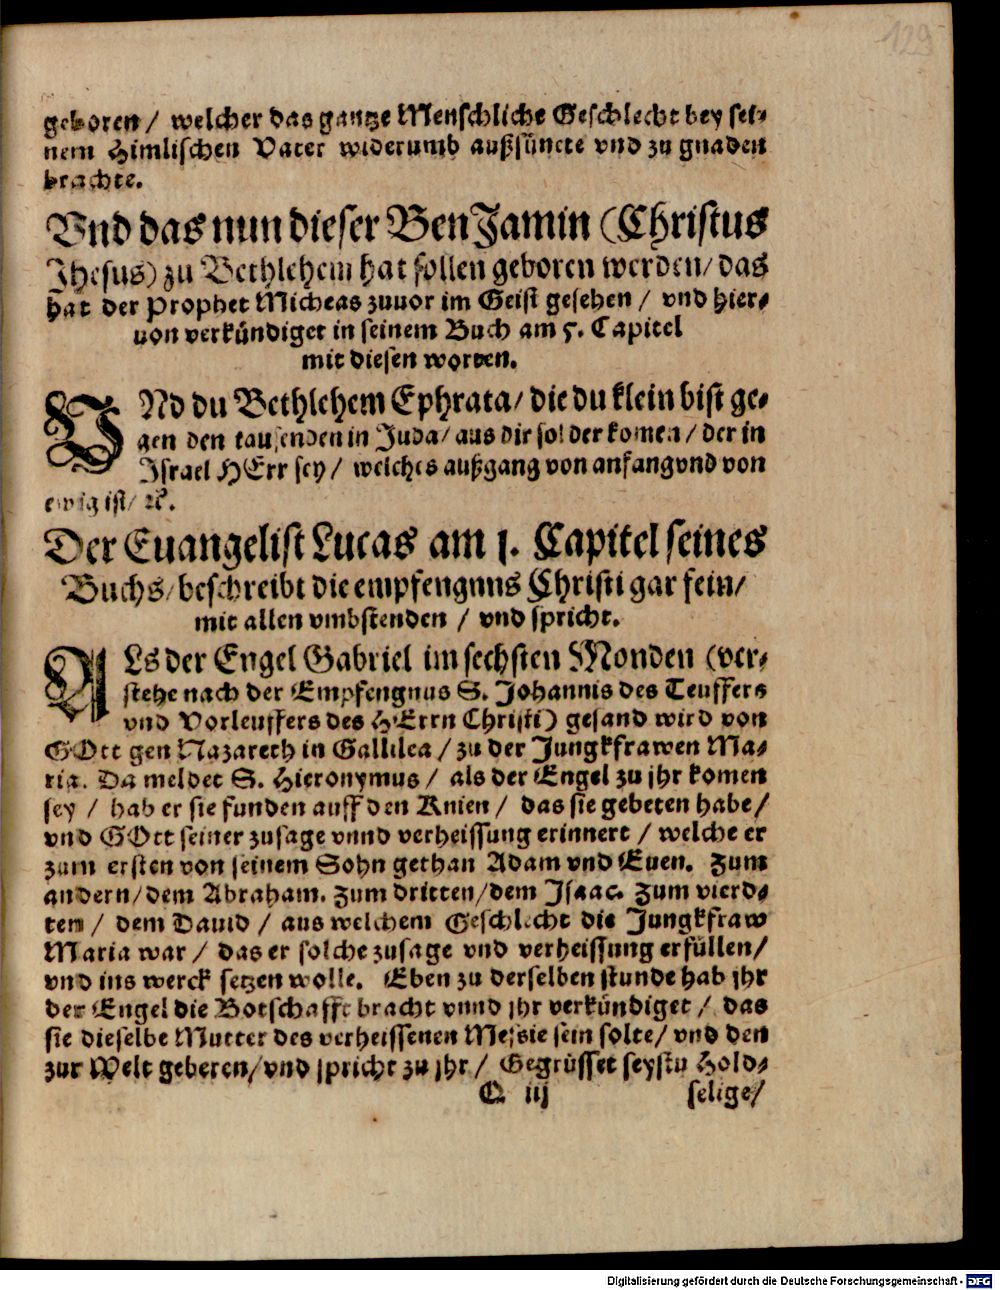 129
geboren / welcher das gantze Menschliche Geschlecht bey sei-
nem Himlischen Vater widerumb außsüncte vnd zu gnaden
brachte.
Vnd das nun dieser BenJamin (Christus
Jhesus) zu Bethlehem hat sollen geboren werden/ das
hat der Prophet Micheas zuuor im Geist gesehen / vnd hier-
uon verkündiget in seinem Buch am 5. Capitel
mit diesen worten.
VNd du Bethlehem Ephrata/ die du klein bist ge-
gen den tausenden in Juda/ aus dir sol der komen / der in
Israel HErr sey / welches außgang von anfang vnd von
ewig ist/ ꝛc.
Der Euangelist Lucas am 1. Capitel seines
Buchs/ beschreibt die empfengnus Christi gar fein/
mit allen vmbstenden / vnd spricht.
ALs der Engel Gabriel im sechsten Monden (ver-
stehe nach der Empfengnus S. Johannis des Teuffers
vnd Vorleuffers des HErrn Christi) gesand wird von
GOtt gen Nazareth in Gallilea / zu der Jungkfrawen Ma-
ria. Da meldet S. Hieronymus / als der Engel zu jhr komen
sey / hab er sie funden auff den Knien / das sie gebeten habe/
vnd GOtt seiner zusage vnnd verheissung erinnert / welche er
zum ersten von seinem Sohn gethan Adam vnd Euen. Zum
andern/ dem Abraham. Zum dritten/ dem Isaac. Zum vierd-
ten / dem Dauid / aus welchem Geschlecht die Jungkfraw
Maria war / das er solche zusage vnd verheissung erfüllen/
vnd ins werck setzen wolle. Eben zu derselben stunde hab jhr
der Engel die Botschafft bracht vnnd jhr verkündiget / das
sie dieselbe Mutter des verheissenen Messie sein solte/ vnd den
zur Welt geberen/ vnd spricht zu jhr / Gegrüsset seystu Hold-
Q iij selige/
Digitalisierung gefördert durch die Deutsche Forschungsgemeinschaft - DFG